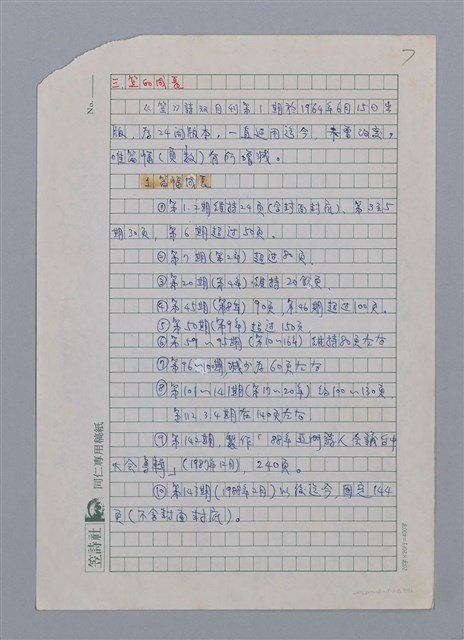 7
No.
三 笠的成長
《笠》詩双月刊第1期於1964年6月15日出
版，為24開版本，一直延用迄今，未曾改変，
唯篇幅(頁数)有所增減。
1. 篇幅成長
①第1.2期維持24頁(含封面封底)、第3至5
期30頁，第6期超过50頁。
②第7期(第2年)超过80頁
③第20期(第4年)維持20餘頁
④第45期(第8年)90頁，第46期超过100頁.
⑤第50期(第9年)超过150頁
⑥第59～95期(第10～16年)維持80頁左右
⑦第96～100期,減少為60頁左右
⑧第101～141期(第17～20年)約100～130頁
第112.3.4期在140頁左右
⑨第142期，製作「88年亞洲詩人会議台中
大会專輯」(1987年12月) 240頁。
⑩第143期(1988年2月)以後迄今，固定144
頁(不含封面封底)。
笠詩社
同仁專用稿紙